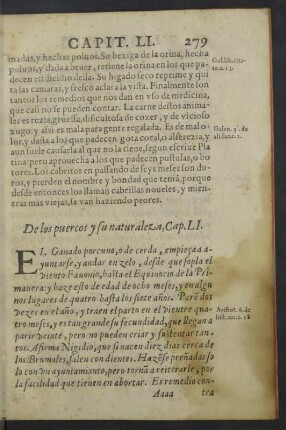 CAPIT. LI. 279
madas, y hechas poluos. Su bexiga de la orina, hecha
poluos, y dada a beuer, retiene la orina en los que pa-
decen estilicidio della. Su higado seco reprime y qui
ta las camaras, y fresco aclara la vista. Finalmente son
tantos los remedios que nos dan en vso de medicina,
que casi no se pueden contar. La carne destos anima-
les es rezia, gruessa, dificultosa de cozer, y de vicioso
xugo; y assi es mala para gente regalada. Es de mal o-
lor, y daña a los que padecen gota cotal, o alferezia, y
aun suele causarla al que no la tiene, segun escriue Pla
tina: pero aprouecha a los que padecen pustulas, o bo
tores. Los cabritos en passando de seys meses son du-
ros, y pierden el nombre y bondad que tenia, porque
desde entonces los llaman cabrillas noueles, y mien-
tras mas viejas, se van haziendo peores.
Galen. 3. de
alis. facu. 1.
De los puercos y su naturaleza, Cap. LI.
EL Ganado porcuno, o de cerda, empieça a a-
yuntarse, y andar en zelo, desde que sopla el
viento Fauonio, hasta el Equinocio de la Pri-
mauera: y haze esto de edad de ocho meses, y en algu
nos lugares de quatro hasta los siete años. Parẽ dos
vezes en el año, y traen el parto en el vientre qua-
tro meses, y es tan grande su fecundidad, que llegan a
parir veinte, pero no pueden criar y sustentar tan-
tos. Afirma Nigidio, que si nacen diez dias cerca de
los Brumales, salen con dientes. Hazẽse preñadas so
lo con vn ayuntamiento, pero tornã a reiterarle, por
la facilidad que tienen en abortar. El remedio con-
Aristot. 6. de
hist. ani. c. 18
Aaaa tra